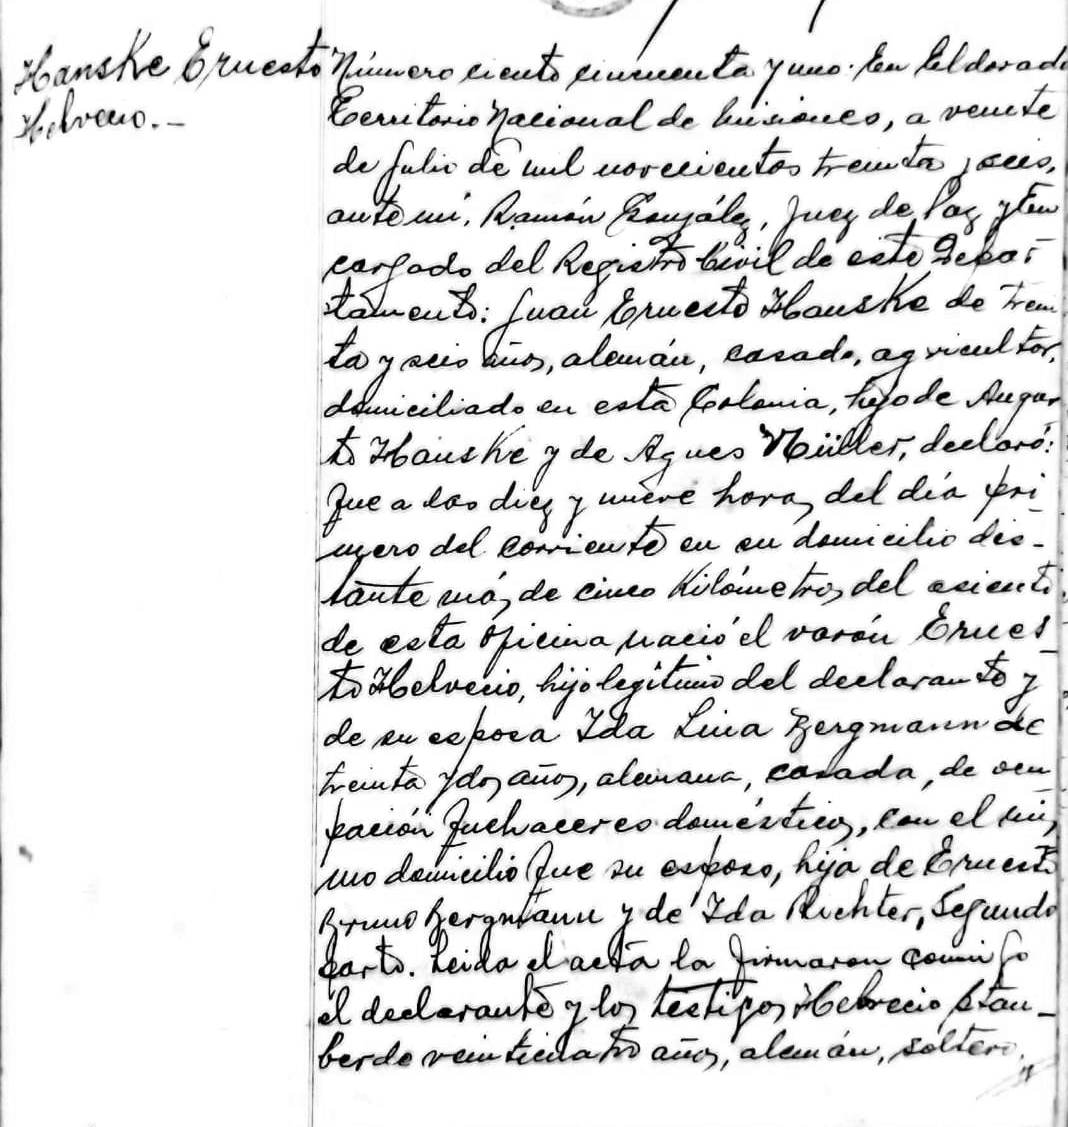 Hanske Ernesto
Helvecio.-
Número ciento cincuenta y uno. En Eldorado
Territorio Nacional de Misiones, a veinte
de Julio de mil novecientos treinta y seis,
ante mí, Ramón González, Juez de Paz y En
cargado del Registro Civil de este Depar-
tamento: Juan Ernesto Hanske de trein
ta y seis años, alemán, casado, agricultor,
domiciliado en esta Colonia, hijo de Augus
to Hanske y de Agnes Müller, declaró:
Que a las diez y nueve horas del día pri
mero del corriente en su domicilio dis-
tante más de cinco Kilómetros del asiento
de esta Oficina nació el varón Ernes-
to Helvecio, hijo legítimo del declarante y
de su esposa Ida Lina Bergmann de
treinta y dos años, alemana, casada, de ocu
pación Quehaceres domésticos, con el mis
mo domicilio que su esposo, hija de Ernesto
Bruno Bergmann y de Ida Richter, Segundo
parto. Leida el acta la firmaron conmigo
el declarante y los testigos Helvecio
de veinticuatro años, alemán, soltero,